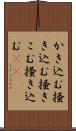 かき込む掻
き込む掻き
こむ掻き込
む